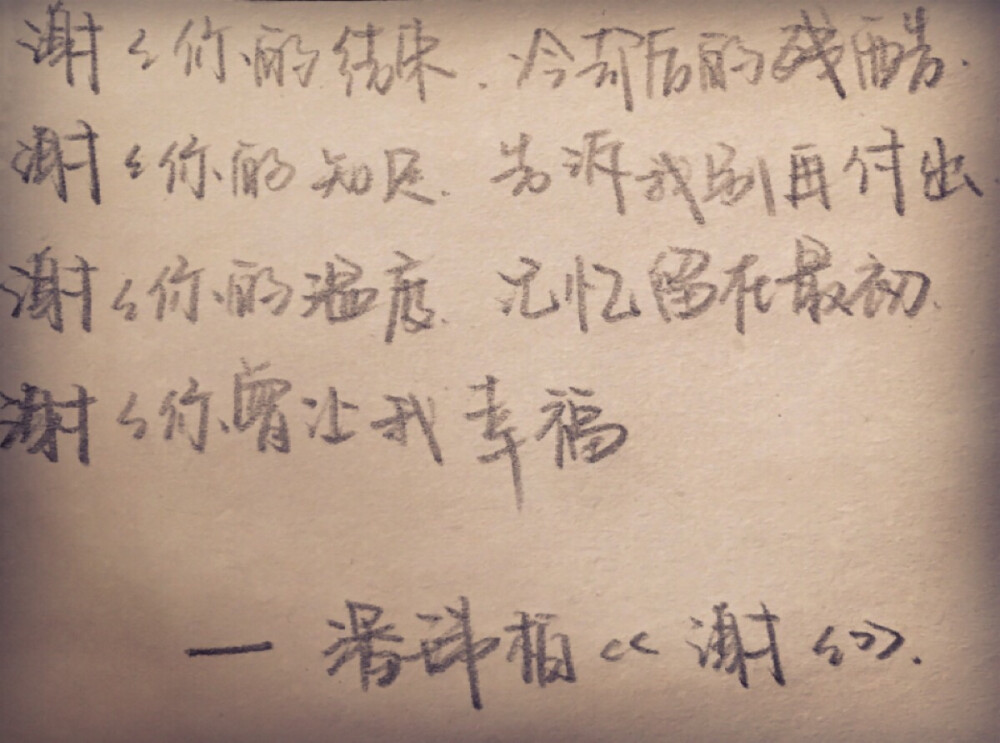 谢々你的结束.冷却后的残酷.
谢々你的知足.告诉我别再付出.
谢々你的温度.记忆留在最初.
谢々你曾让我幸福
— 潘玮柏《谢々》.